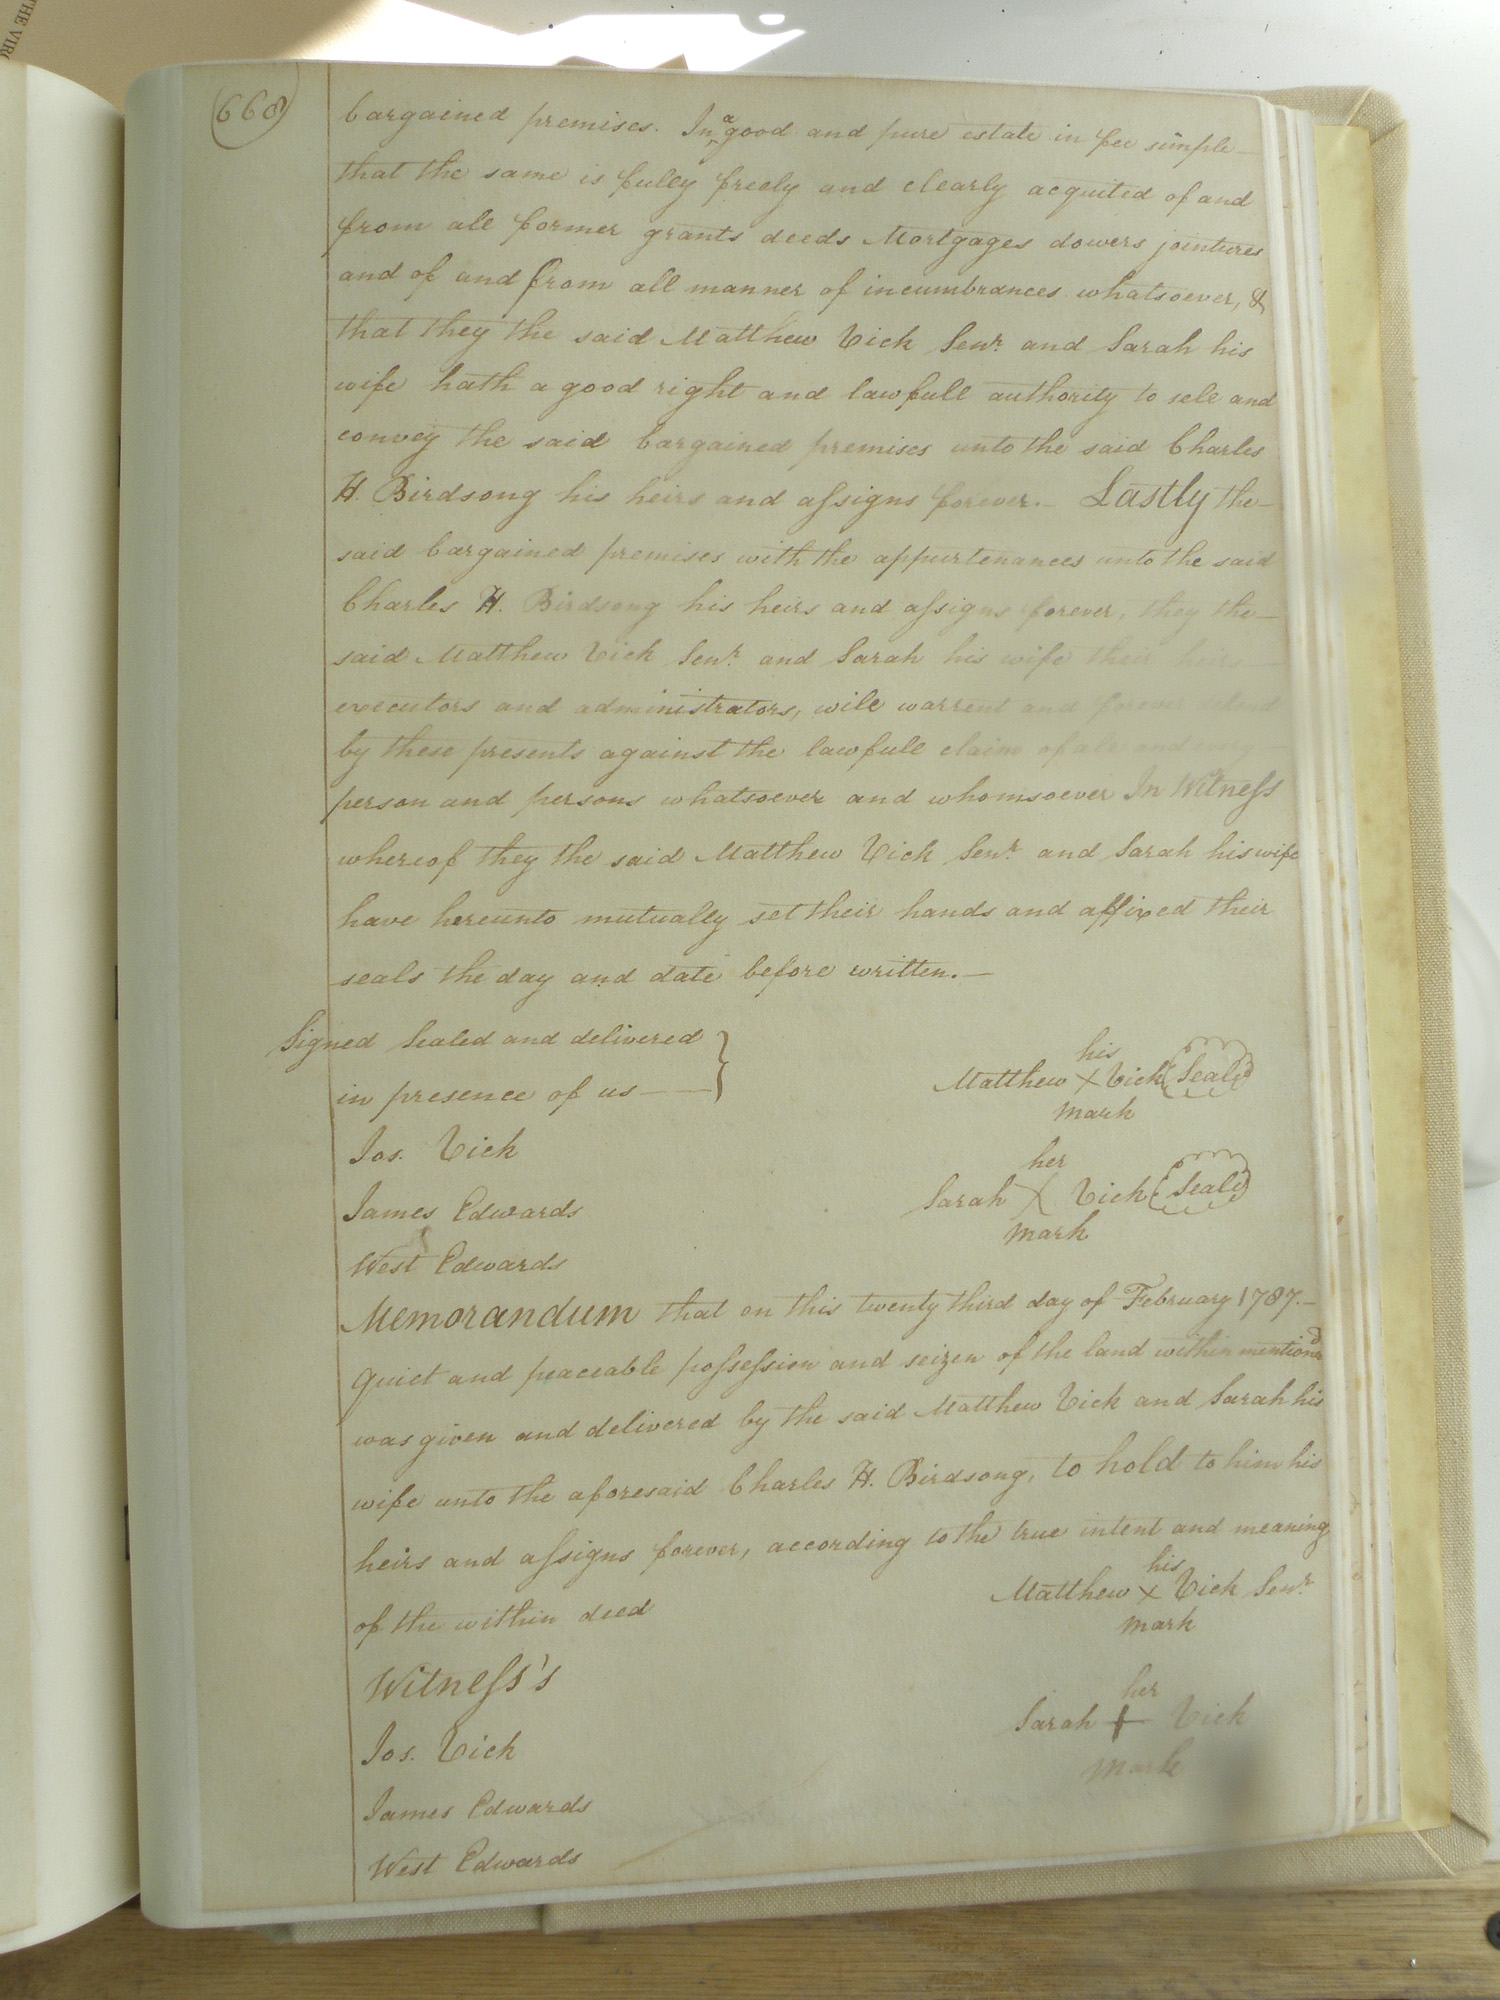 THE VIR
668
bargained premises. In a good and pure estate in fee simple
that the same is fully freely and clearly acquited of and
from all former grants deeds Mortgages dowers jointures
and of and from all manner of incumbrances whatsoever, &
that they the said Matthew Vick Senr. and Sarah his
wife hath a good right and lawfull authority to sell and
convey the said bargained premises unto the said Charles
H. Birdsong his heirs and assigns forever. Lastly the
said bargained premises with the appurtenances unto the said
Charles H. Birdsong his heirs and assigns forever, they the
said Matthew Vick Senr. and Sarah his wife their heirs
executors and administrators, will warrent and forever
by these presents against the lawfull claim of all and every
person and persons whatsoever and whomsoever In Witness
whereof they the said Matthew Vick Senr. and Sarah his wife
have hereunto mutually set their hands and affixed their
seals the day and date before written.
Signed Sealed and delivered
in presence of us
his
Matthew X Vick (Seal)
mark
Jos. Vick
her
Sarah X Vick (Seal)
mark
James Edwards
West Edwards
Memorandum that on this twenty third day of February 1787.
quiet and peaceable possession and seizen of the land within mentiond
was given and delivered by the said Matthew Vick and Sarah his
wife unto the aforesaid Charles H. Birdsong, to hold to him his
heirs and assigns forever, according to the true intent and meaning
of the within deed
his
Matthew X Vick Senr.
mark
Witness's
her
Sarah + Vick
mark
Jos. Vick
James Edwards
West Edwards